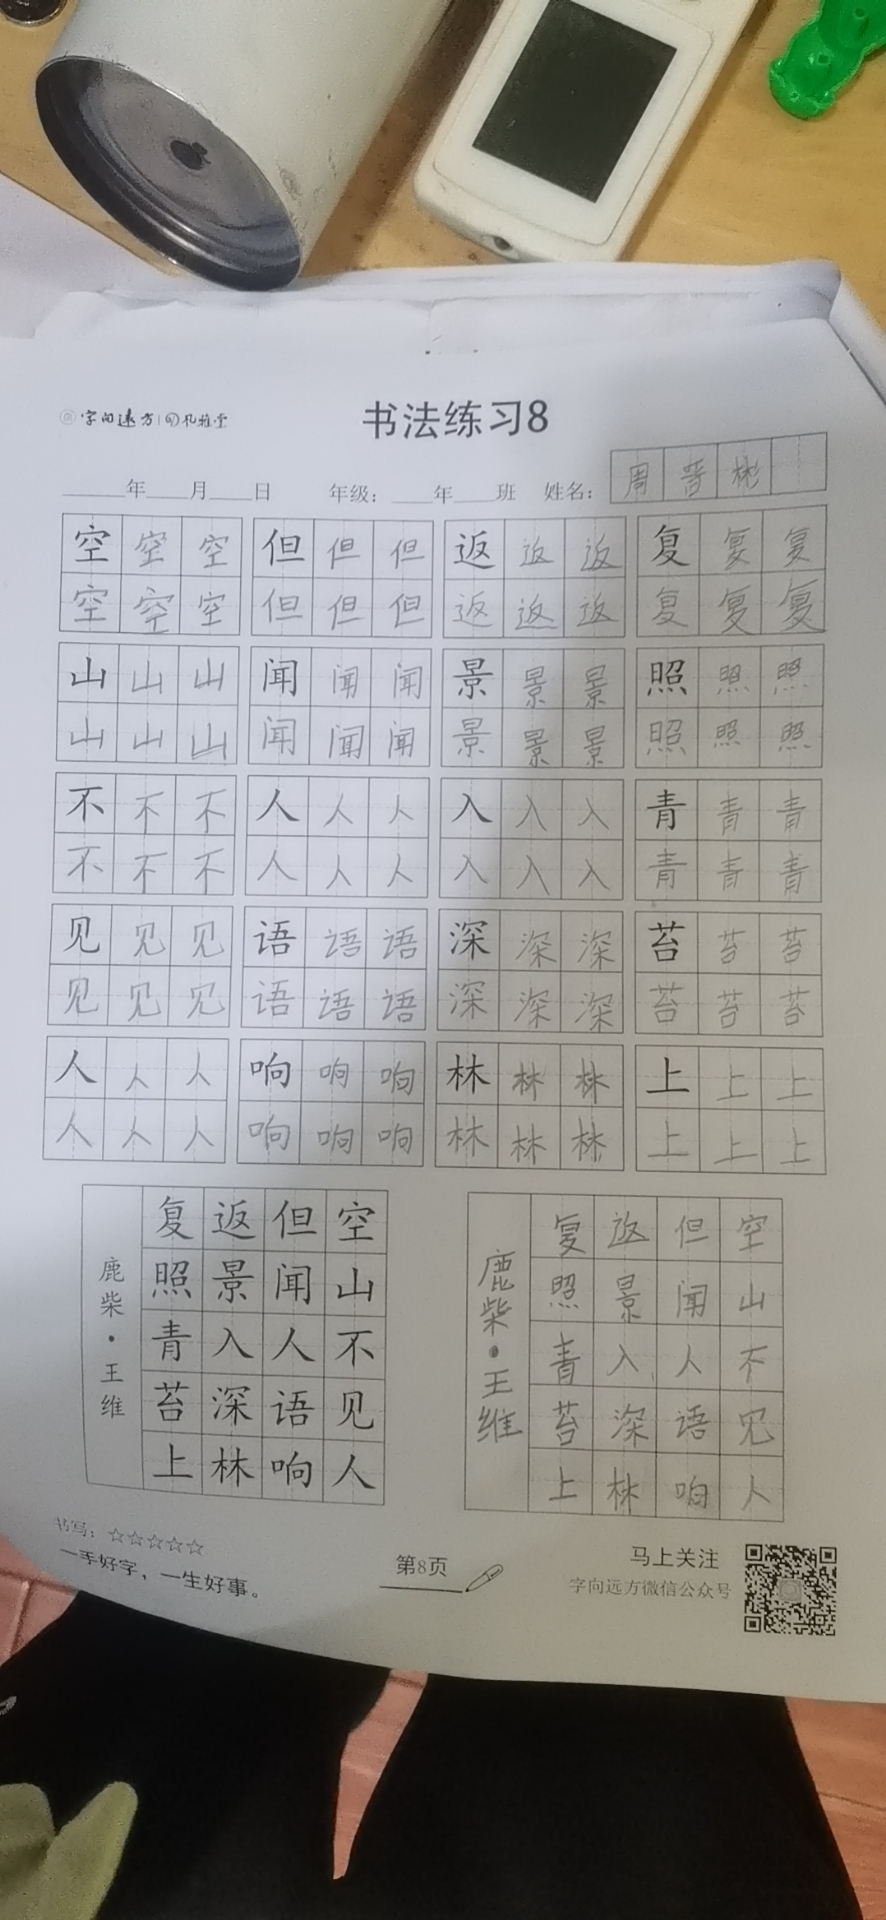 字向远方 孔雅堂
书法练习8
年 月 日 年级： 年 班 姓名： 周 晋 彬
空 空 空 但 但 但 返 返 返 复 复 复
空 空 空 但 但 但 返 返 返 复 复 复
山 山 山 闻 闻 闻 景 景 景 照 照 照
山 山 山 闻 闻 闻 景 景 景 照 照 照
不 不 不 人 人 人 入 入 入 青 青 青
不 不 不 人 人 人 入 入 入 青 青 青
见 见 见 语 语 语 深 深 深 苔 苔 苔
见 见 见 语 语 语 深 深 深 苔 苔 苔
人 人 人 响 响 响 林 林 林 上 上 上
人 人 人 响 响 响 林 林 林 上 上 上
空山不见人
但闻人语响
返景入深林
复照青苔上
鹿柴·王维
空山不见人
但闻人语响
返景入深林
复照青苔上
鹿柴·王维
书写：☆☆☆☆☆
一手好字，一生好事。
第8页
马上关注
字向远方微信公众号